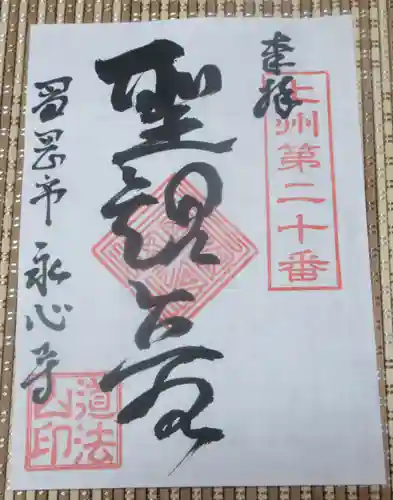 奉拝
上州第二十番
聖観世音
富岡市 永心寺
道法山印